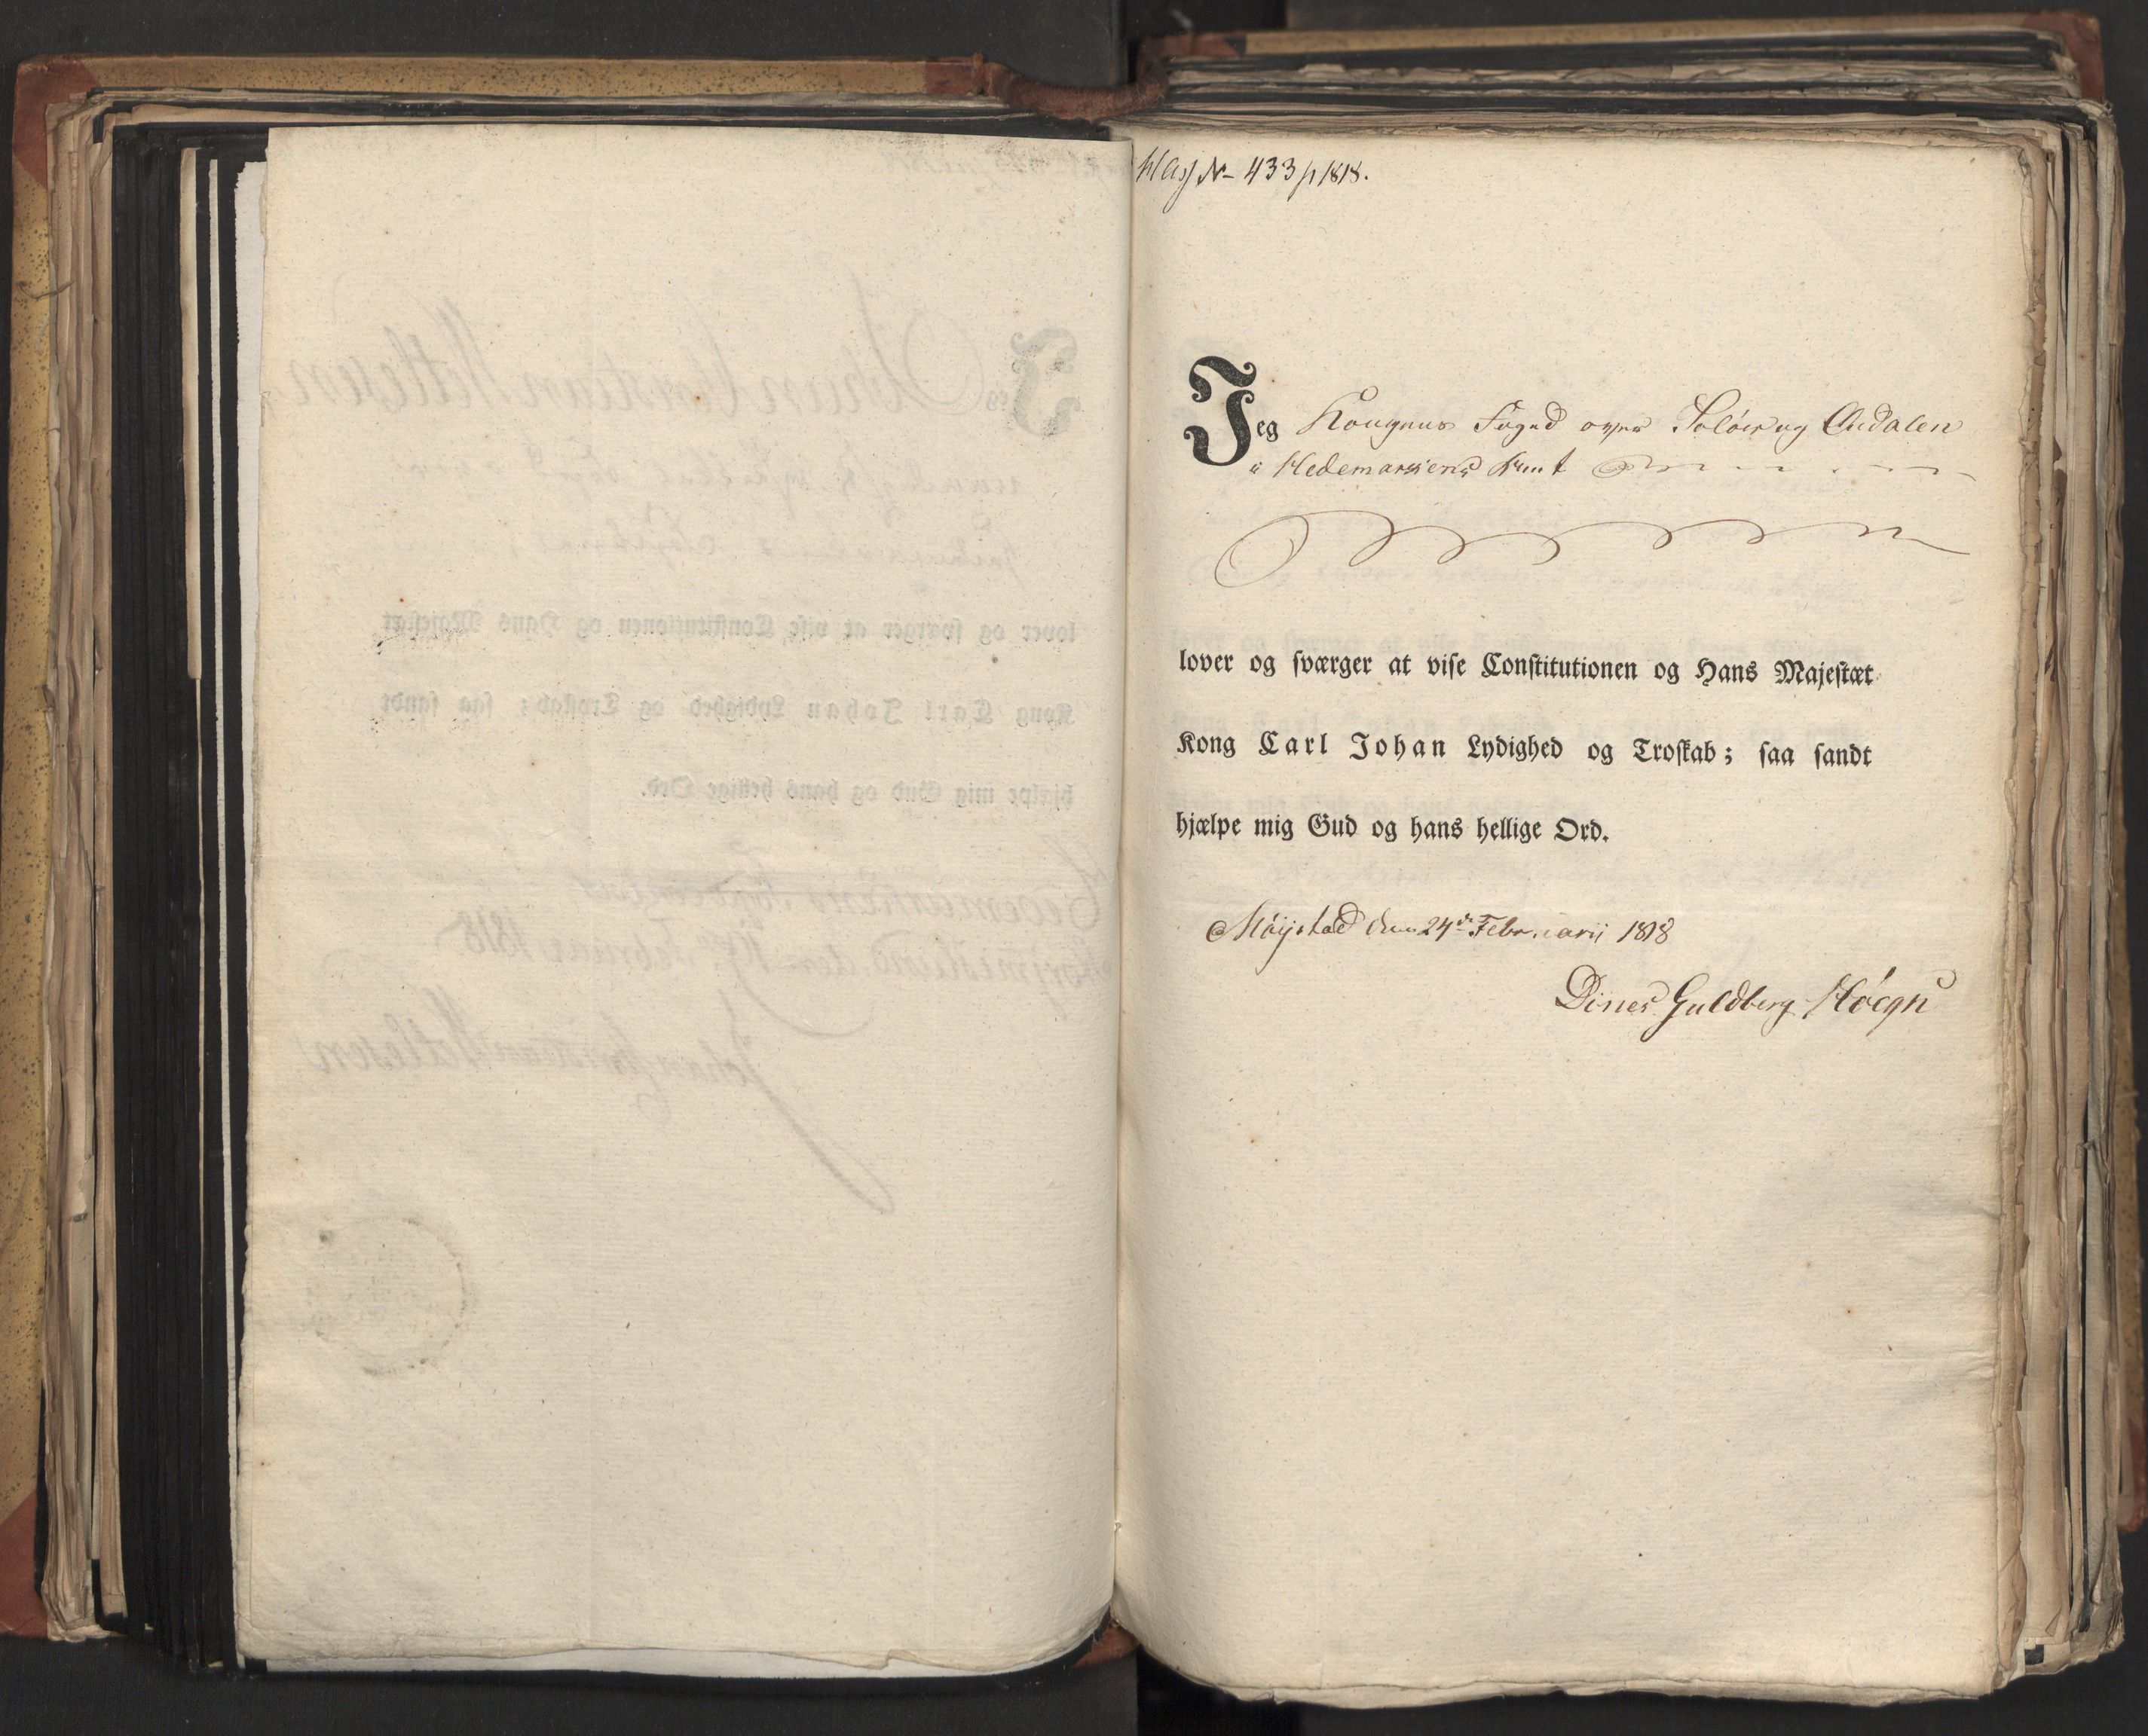 No 433/1818.
Jeg Kongens Foged over Soløer og Oudalen
i Hedemarkens Amt
lover og sværger at vise Constitutionen og Hans Majestæt
Kong Carl Johan Lydighed og Troskab; saa sandt
hjælpe mig Gud og hans hellige Ord.
den 24de Februarii 1818
Dines Guldberg Høegh